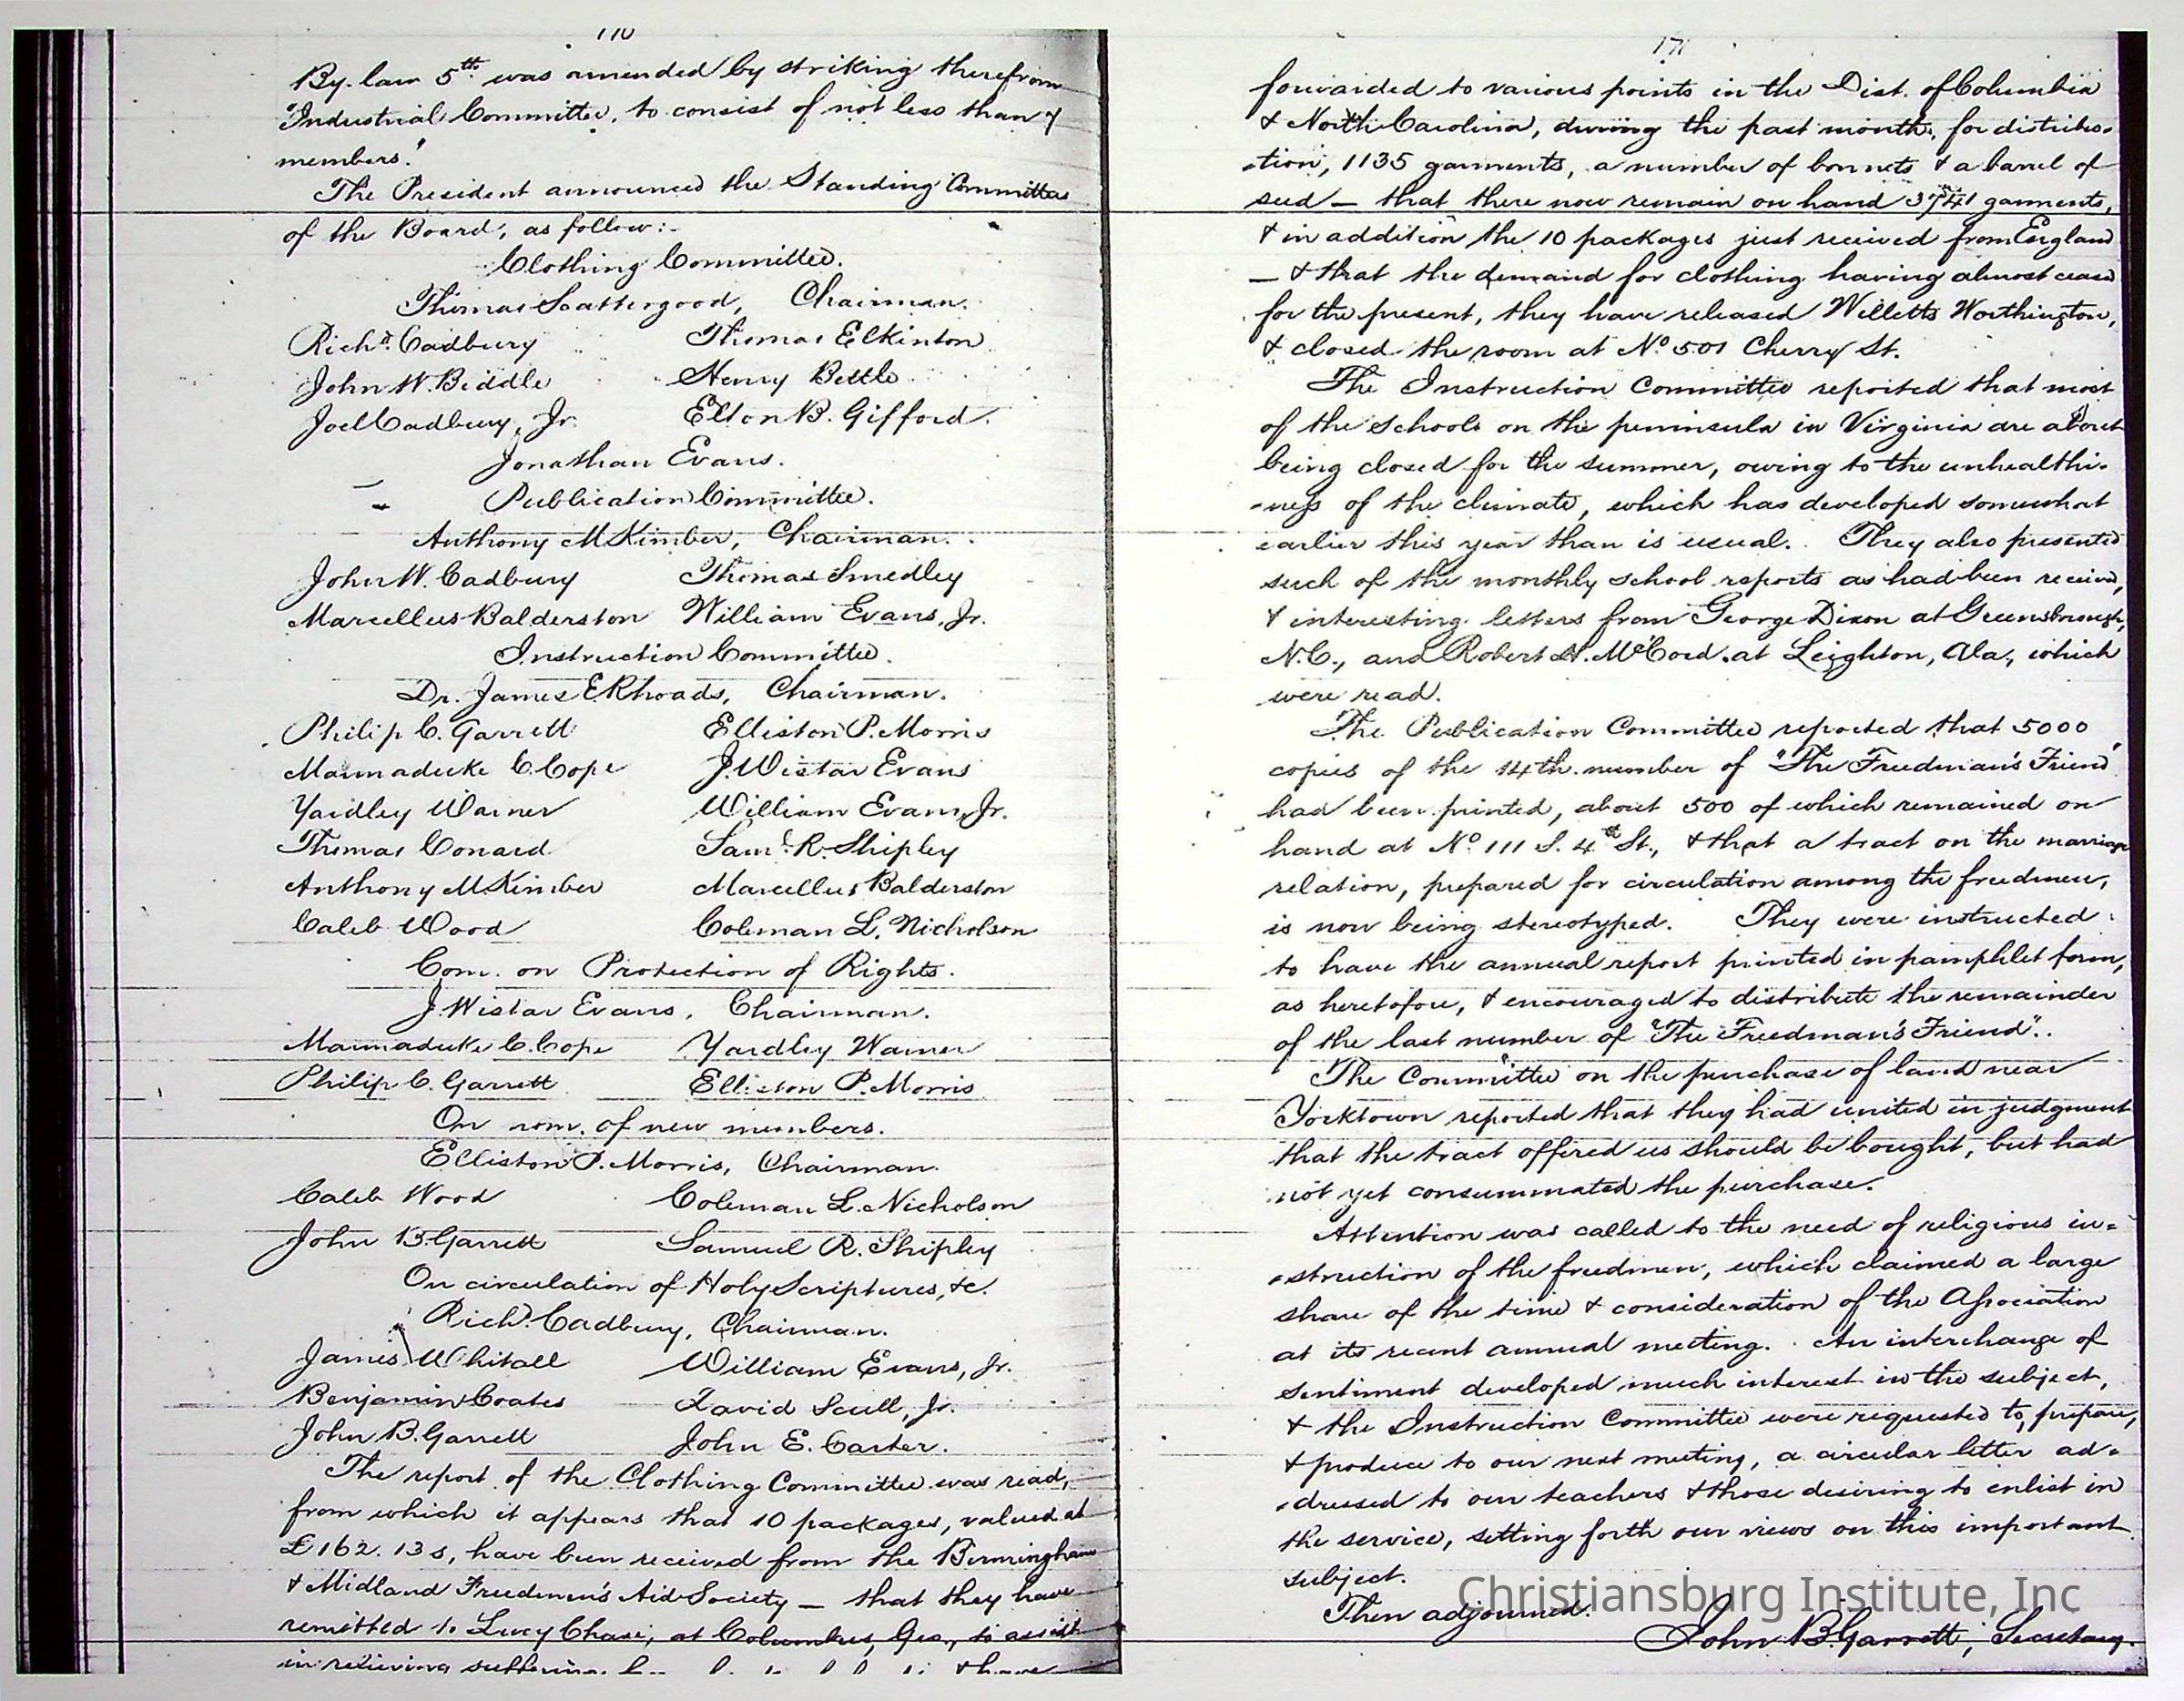 170
By-law 5th was amended by striking therefrom
"Industrial Committee, to consist of not less than 7
members."
The President announced the Standing Committees
of the Board, as follow:-
Clothing Committee.
Thomas Scattergood, Chairman.
Richd. Cadbury Thomas Elkinton
John W. Biddle Henry Bettle
Joel Cadbury, Jr. Elton B. Gifford.
Jonathan Evans.
Publication Committee.
Anthony M Kimber, Chairman.
John W. Cadbury Thomas Smedley
Marcellus Balderston William Evans, Jr.
Instruction Committee.
Dr. James E. Rhoads, Chairman.
Philip C. Garrett Elliston P. Morris
Marmaduke C. Cope J. Wistar Evans
Yardley Warner William Evans, Jr.
Thomas Conard Saml. R. Shipley
Anthony M. Kimber Marcellus Balderston
Caleb Wood Coleman L. Nicholson
Com. on Protection of Rights.
J. Wistar Evans, Chairman.
Marmaduke C. Cope Yardley Warner
Philip C. Garrett Elliston P. Morris
On nom. of new members.
Elliston P. Morris, Chairman.
Caleb Wood Coleman L. Nicholson
John B. Garrett Samuel R. Shipley
On circulation of Holy Scriptures, &c.
Richd. Cadbury, Chairman.
James Whitall William Evans, Jr.
Benjamin Coates David Scull, Jr.
John B. Garrett John E. Carter.
The report of the Clothing Committee was read,
from which it appears that 10 packages, valued at
£162. 13s, have been received from the Birmingham
& Midland Freedmen's Aid Society — that they have
remitted to Lucy Chase, at Columbus, Geo., to assist
in relieving suffering & have
171
forwarded to various points in the Dist. of Columbia
& North Carolina, during the past month, for distribu-
-tion, 1135 garments, a number of bonnets & a barrel of
seed — that there now remain on hand 3741 garments,
& in addition the 10 packages just received from England
— & that the demand for clothing having almost ceased
for the present, they have released Willetts Worthington,
& closed the room at No. 501 Cherry St.
The Instruction Committee reported that most
of the schools on the peninsula in Virginia are about
being closed for the summer, owing to the unhealthi-
-ness of the climate, which has developed somewhat
earlier this year than is usual. They also presented
such of the monthly school reports as had been received,
& interesting letters from George Dixon at Greensborough,
N.C., and Robert N. McCord at Leighton, Ala., which
were read.
The Publication Committee reported that 5000
copies of the 14th number of "The Freedman's Friend"
had been printed, about 500 of which remained on
hand at No. 111 S. 4th St., & that a tract on the marriage
relation, prepared for circulation among the freedmen,
is now being stereotyped. They were instructed
to have the annual report printed in pamphlet form,
as heretofore, & encouraged to distribute the remainder
of the last number of "The Freedman's Friend".
The Committee on the purchase of land near
Yorktown reported that they had united in judgment
that the tract offered us should be bought, but had
not yet consummated the purchase.
Attention was called to the need of religious in-
-struction of the freedmen, which claimed a large
share of the time & consideration of the Association
at its recent annual meeting. An interchange of
sentiment developed much interest in the subject,
& the Instruction Committee were requested to prepare,
& produce to our next meeting, a circular letter ad-
-dressed to our teachers & those desiring to enlist in
the service, setting forth our views on this important
subject.
Then adjourned.
John B. Garrett, Secretary.
Christiansburg Institute, Inc